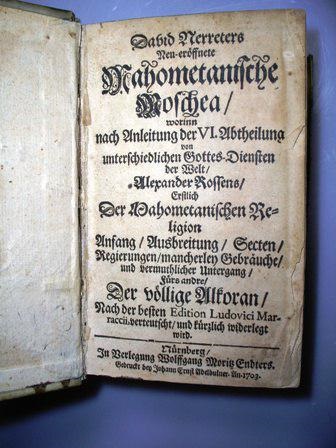 David Nerreters
Neu-eröffnete
Mahometanische
Moschea/
worinn
nach Anleitung der VI. Abtheilung
von
unterschiedlichen Gottes-Diensten
der Welt/
Alexander Rossens/
Erstlich
Der Mahometanischen Re-
ligion
Anfang/ Ausbreitung/ Secten/
Regierungen/ mancherley Gebräuche/
und vermuthlicher Untergang/
Fürs andre/
Der völlige Alkoran/
Nach der besten Edition Ludovici Mar-
raccii, verteutscht/ und kürtzlich widerlegt
wird.
Nürnberg/
In Verlegung Wolffgang Moritz Endters.
Gedruckt bey Johann Ernst Adelbulner. An. 1703.